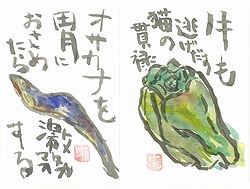 牛も
逃げだす
猫の
貫禄
オサカナを
胃に
おさめたら
する